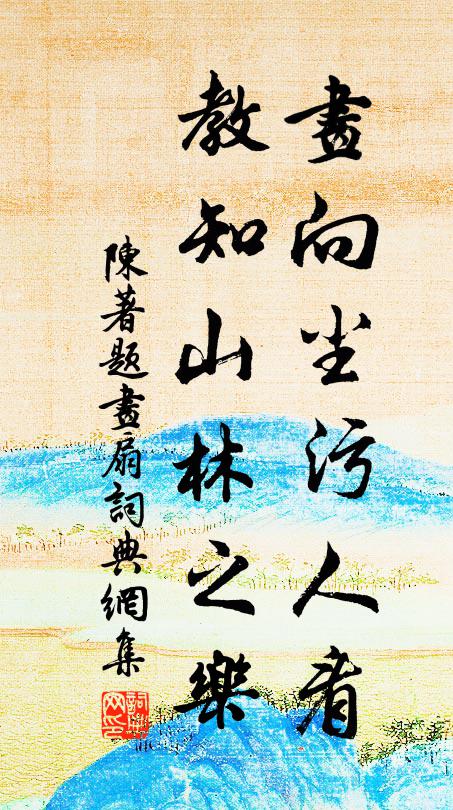 畫向尘污人看
教知山林之樂
陳著題畫扇詞典網集
詞典
网印